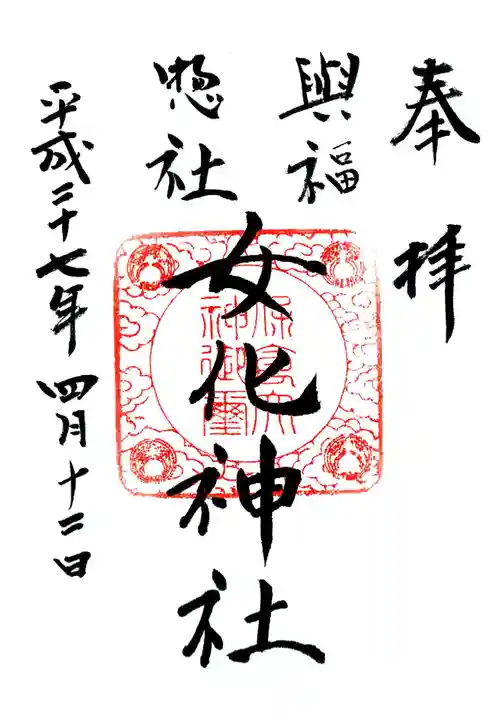 奉拝
與福
惣社
女化神社
保食大
神御璽
平成二十七年四月十二日